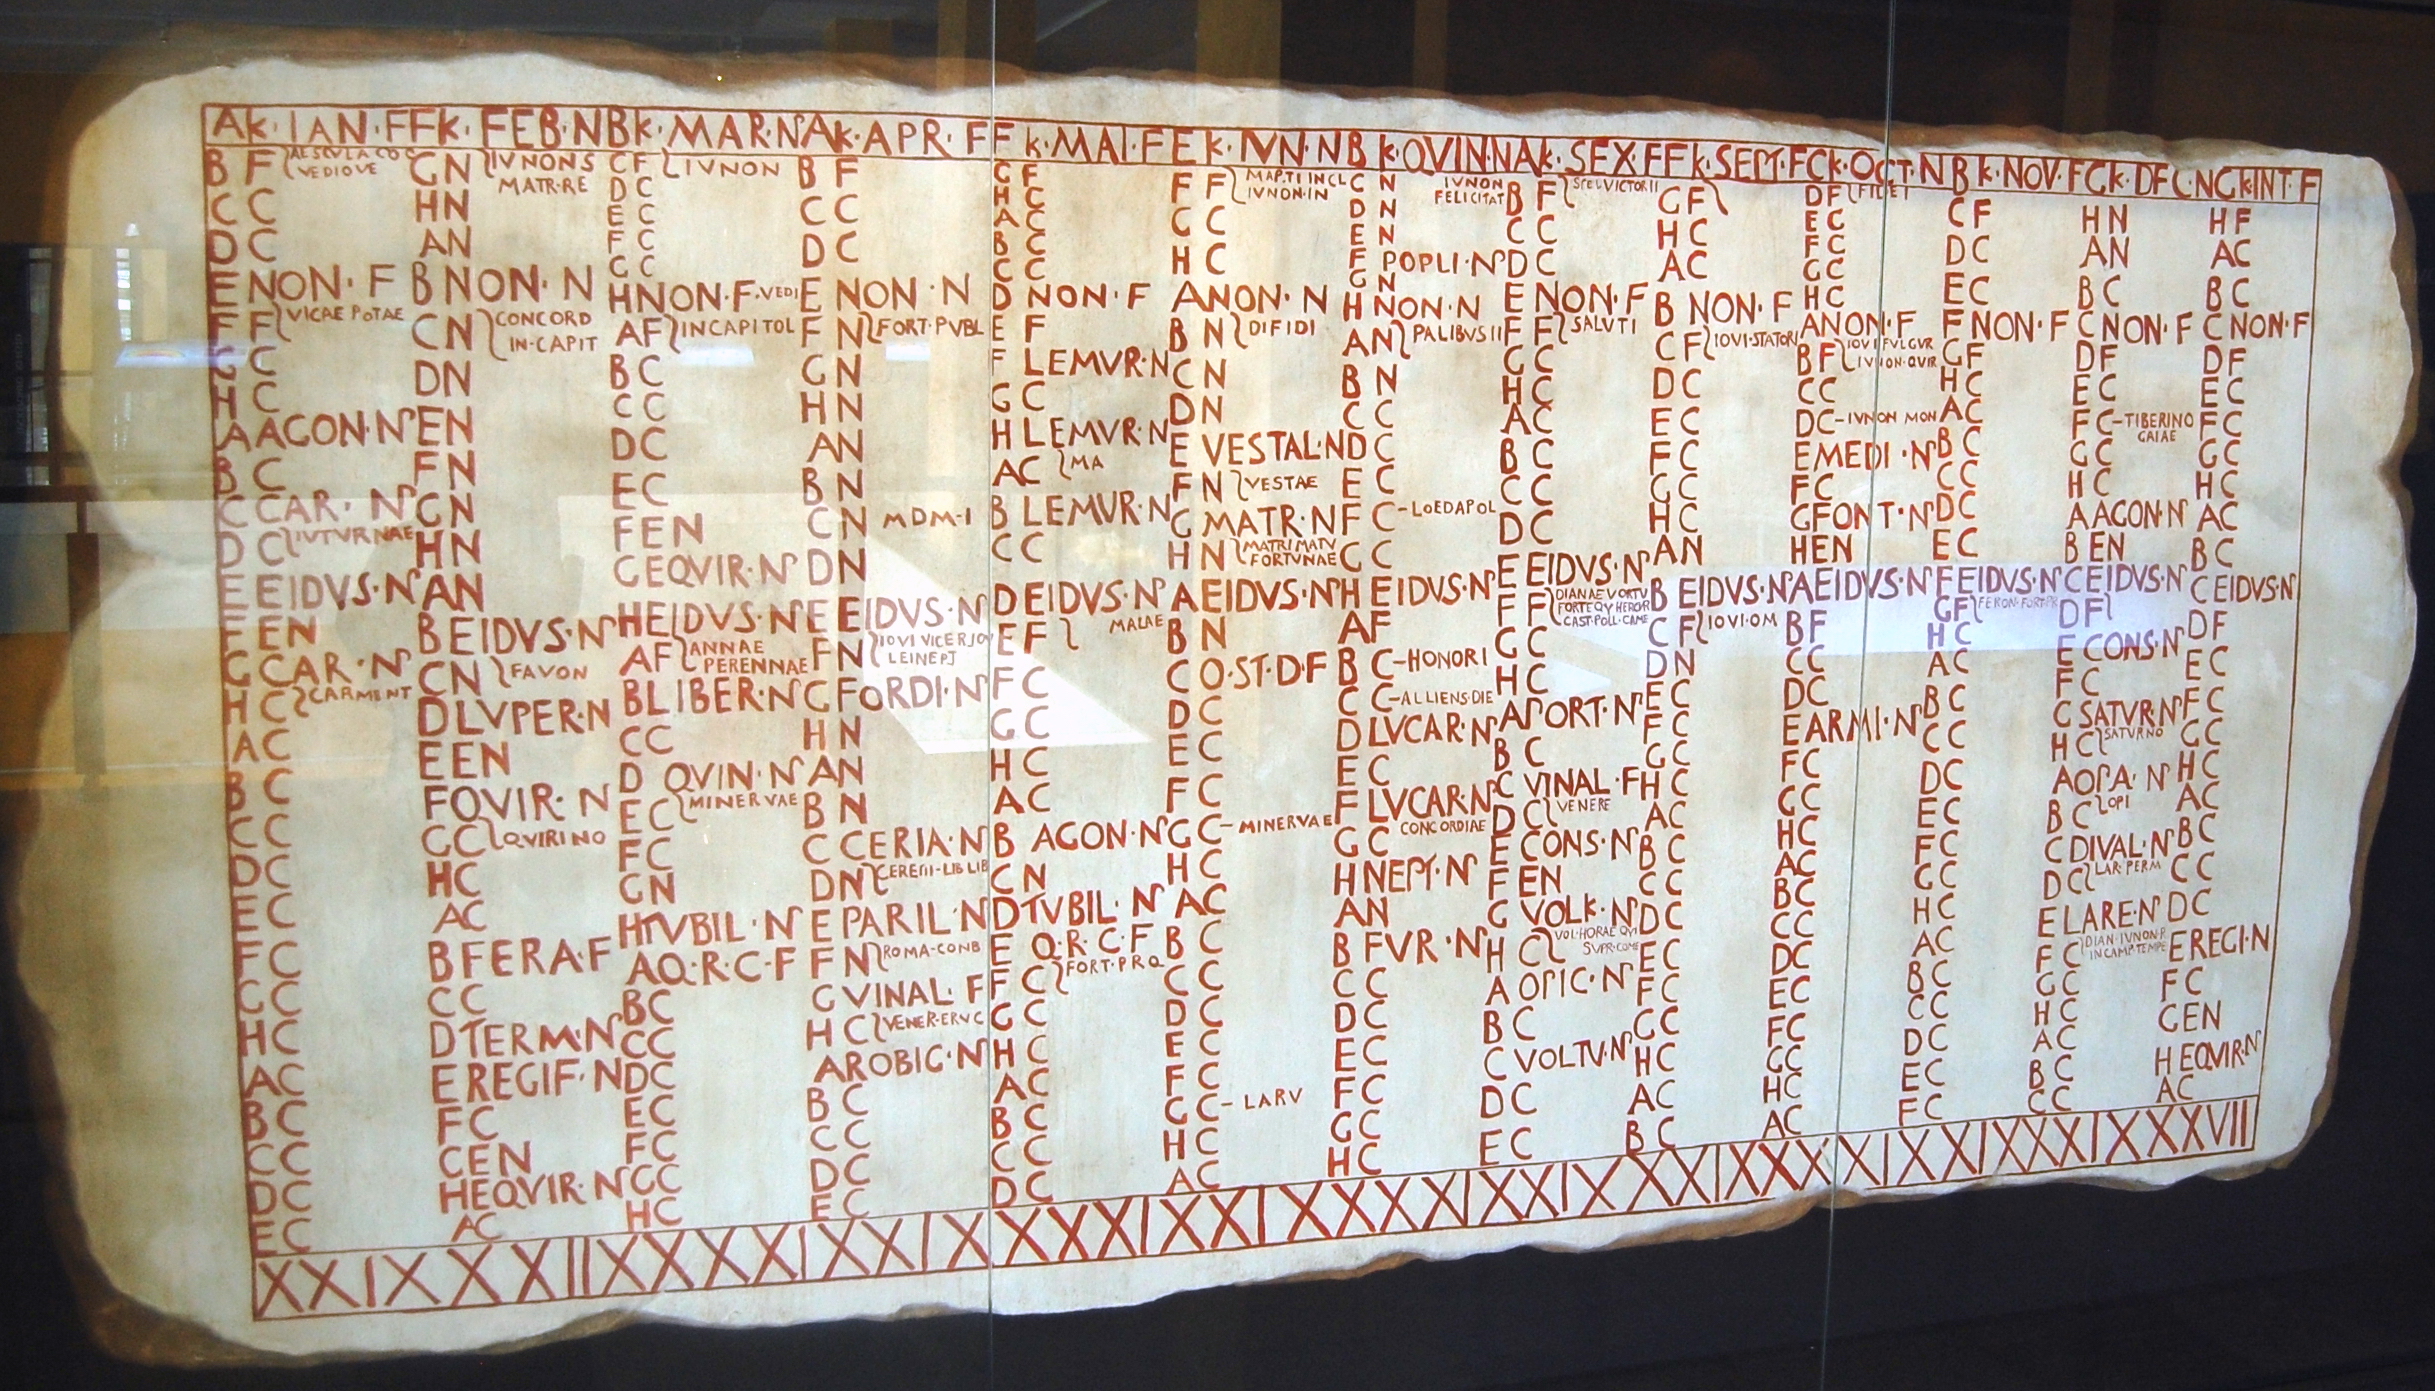 AK·IAN·F
B F AESCVLA CO C
VEDIOVE
C C
D C
E NON·F
F F VICAE POTAE
G C
H C
A AGON·N
B C
C CAR·N
D C IVTVRNAE
E EIDVS·N
F EN
G CAR·N
H C CARMENT
A C
B C
C C
D C
E C
F C
G C
H C
A C
B C
C C
D C
E C
XXIX
FK·FEB·N
G N IVNON S
MATR·RE
H N
A N
B NON·N
C N CONCORD
IN·CAPIT
D N
E N
F N
G N
H N
A N
B EIDVS·N
C N FAVON
D LVPER·N
E EN
F QVIR·N
G C QVIRINO
H C
A C
B FERA·F
C C
D TERM·N
E REGIF·N
F C
G EN
H EQVIR·N
A C
XXVIII
BK·MAR·N
C F IVNON
D C
E C
F C
G C
H NON·F VEDI
A F IN CAPITOL
B C
C C
D C
E C
F EN
G EQVIR·N
H EIDVS·N
A F ANNAE
PERENNAE
B LIBER·N
C C
D QVIN·N
E C MINERVAE
F C
G N
H TVBIL·N
A Q·R·C·F
B C
C C
D C
E C
F C
G C
H C
XXXI
AK·APR·F
B F
C C
D C
E NON·N
F N FORT·PVBL
G N
H N
A N
B N
C N MDM·I
D N
E EIDVS·N
F N IOVI VICE
G FORDI·N
H N
A N
B N
C CERIA·N
D N CERERI·LIB LIB
E PARIL·N
F N ROMA·COND
G VINAL·F
H C VENER·ERVC
A ROBIG·N
B C
C C
D C
E C
XXIX
FK·MAI·F
G F
H C
A C
B C
C C
D NON·F
E F
F LEMVR·N
G C
H LEMVR·N
A C MA
B LEMVR·N
C C
D EIDVS·N
E F MALAE
F C
G C
H C
A C
B AGON·N
C N
D TVBIL·N
E Q·R·C·F
F C FORT·PRQ
G C
H C
A C
B C
C C
D C
XXXI
EK·IVN·N
F F MAR·TI INCL
IVNON·IN
G C
H C
A NON·N
B N DI FIDI
C N
D N
E VESTAL·N
F N VESTAE
G MATR·N
H N MATRI MATV
FORTVNAE
A EIDVS·N
B N
C Q·ST·D·F
D C
E C
F C
G C MINERVAE
H C
A C
B C
C C
D C
E C
F C
G C LARV
H C
A C
XXIX
BK·QVIN·N
C N IVNON
FELICITAT
D N
E N
F POPLI·N
G N
H NON·N
A N PALIBVS II
B N
C C
D C
E C
F C LOEDAPOL
G C
H EIDVS·N
A F
B C HONORI
C C ALLIENS·DIE
D LVCAR·N
E C
F LVCAR·N
G C CONCORDIAE
H NEPT·N
A N
B FVR·N
C C
D C
E C
F C
G C
H C
XXXI
AK·SEX·F
B F SPEI VICTOR II
C C
D C
E NON·F
F F SALVTI
G C
H C
A C
B C
C C
D C
E EIDVS·N
F F DIANAE VORTV
FORTE QV HERCR
CAST·POLL·CAME
G C
H C
A PORT·N
B C
C VINAL·F
D C VENERE
E CONS·N
F EN
G VOLK·N
H C VOL·HORAE QVI
SVPR·COME
A OPIC·N
B C
C VOLTV·N
D C
E C
XXIX
FK·SEPT·F
G F
H C
A C
B NON·F
C F IOVI·STATORI
D C
E C
F C
G C
H C
A N
B EIDVS·N
C F IOVI·OM
D N
E C
F C
G C
H C
A C
B C
C C
D C
E C
F C
G C
H C
A C
B C
XXIX
CK·OCT·N
D F FIDEI
E C
F C
G C
H C
A NON·F
B F IOVI FVLGVR
IVNON·QVIR
C C
D C IVNON MON
E MEDI·N
F C
G FONT·N
H EN
A EIDVS·N
B F
C C
D C
E ARMI·N
F C
G C
H C
A C
B C
C C
D C
E C
F C
G C
H C
A C
XXXI
BK·NOV·F
C F
D C
E C
F NON·F
G F
H C
A C
B C
C C
D C
E C
F EIDVS·N
G F FERON·FORT·PR
H C
A C
B C
C C
D C
E C
F C
G C
H C
A C
B C
C C
D C
E C
F C
XXIX
GK·DEC·N
H N
A N
B C
C NON·F
D F
E C
F C TIBERINO
GAIAE
G C
H C
A AGON·N
B EN
C EIDVS·N
D F
E CONS·N
F C
G SATVR·N
H C SATVRNO
A OPA·N
B C OPI
C DIVAL·N
D C LAR·PERM
E LARE·N
F C DIAN·IVNON·R
IN CAMP·TEMPE
G C
H C
A C
B C
C C
XXIX
GK·INT·F
H F
A C
B C
C NON·F
D F
E C
F C
G C
H C
A C
B C
C EIDVS·N
D F
E C
F C
G C
H C
A C
B C
C C
D C
E REGI·N
F C
G EN
H EQVIR·N
A C
XXVII